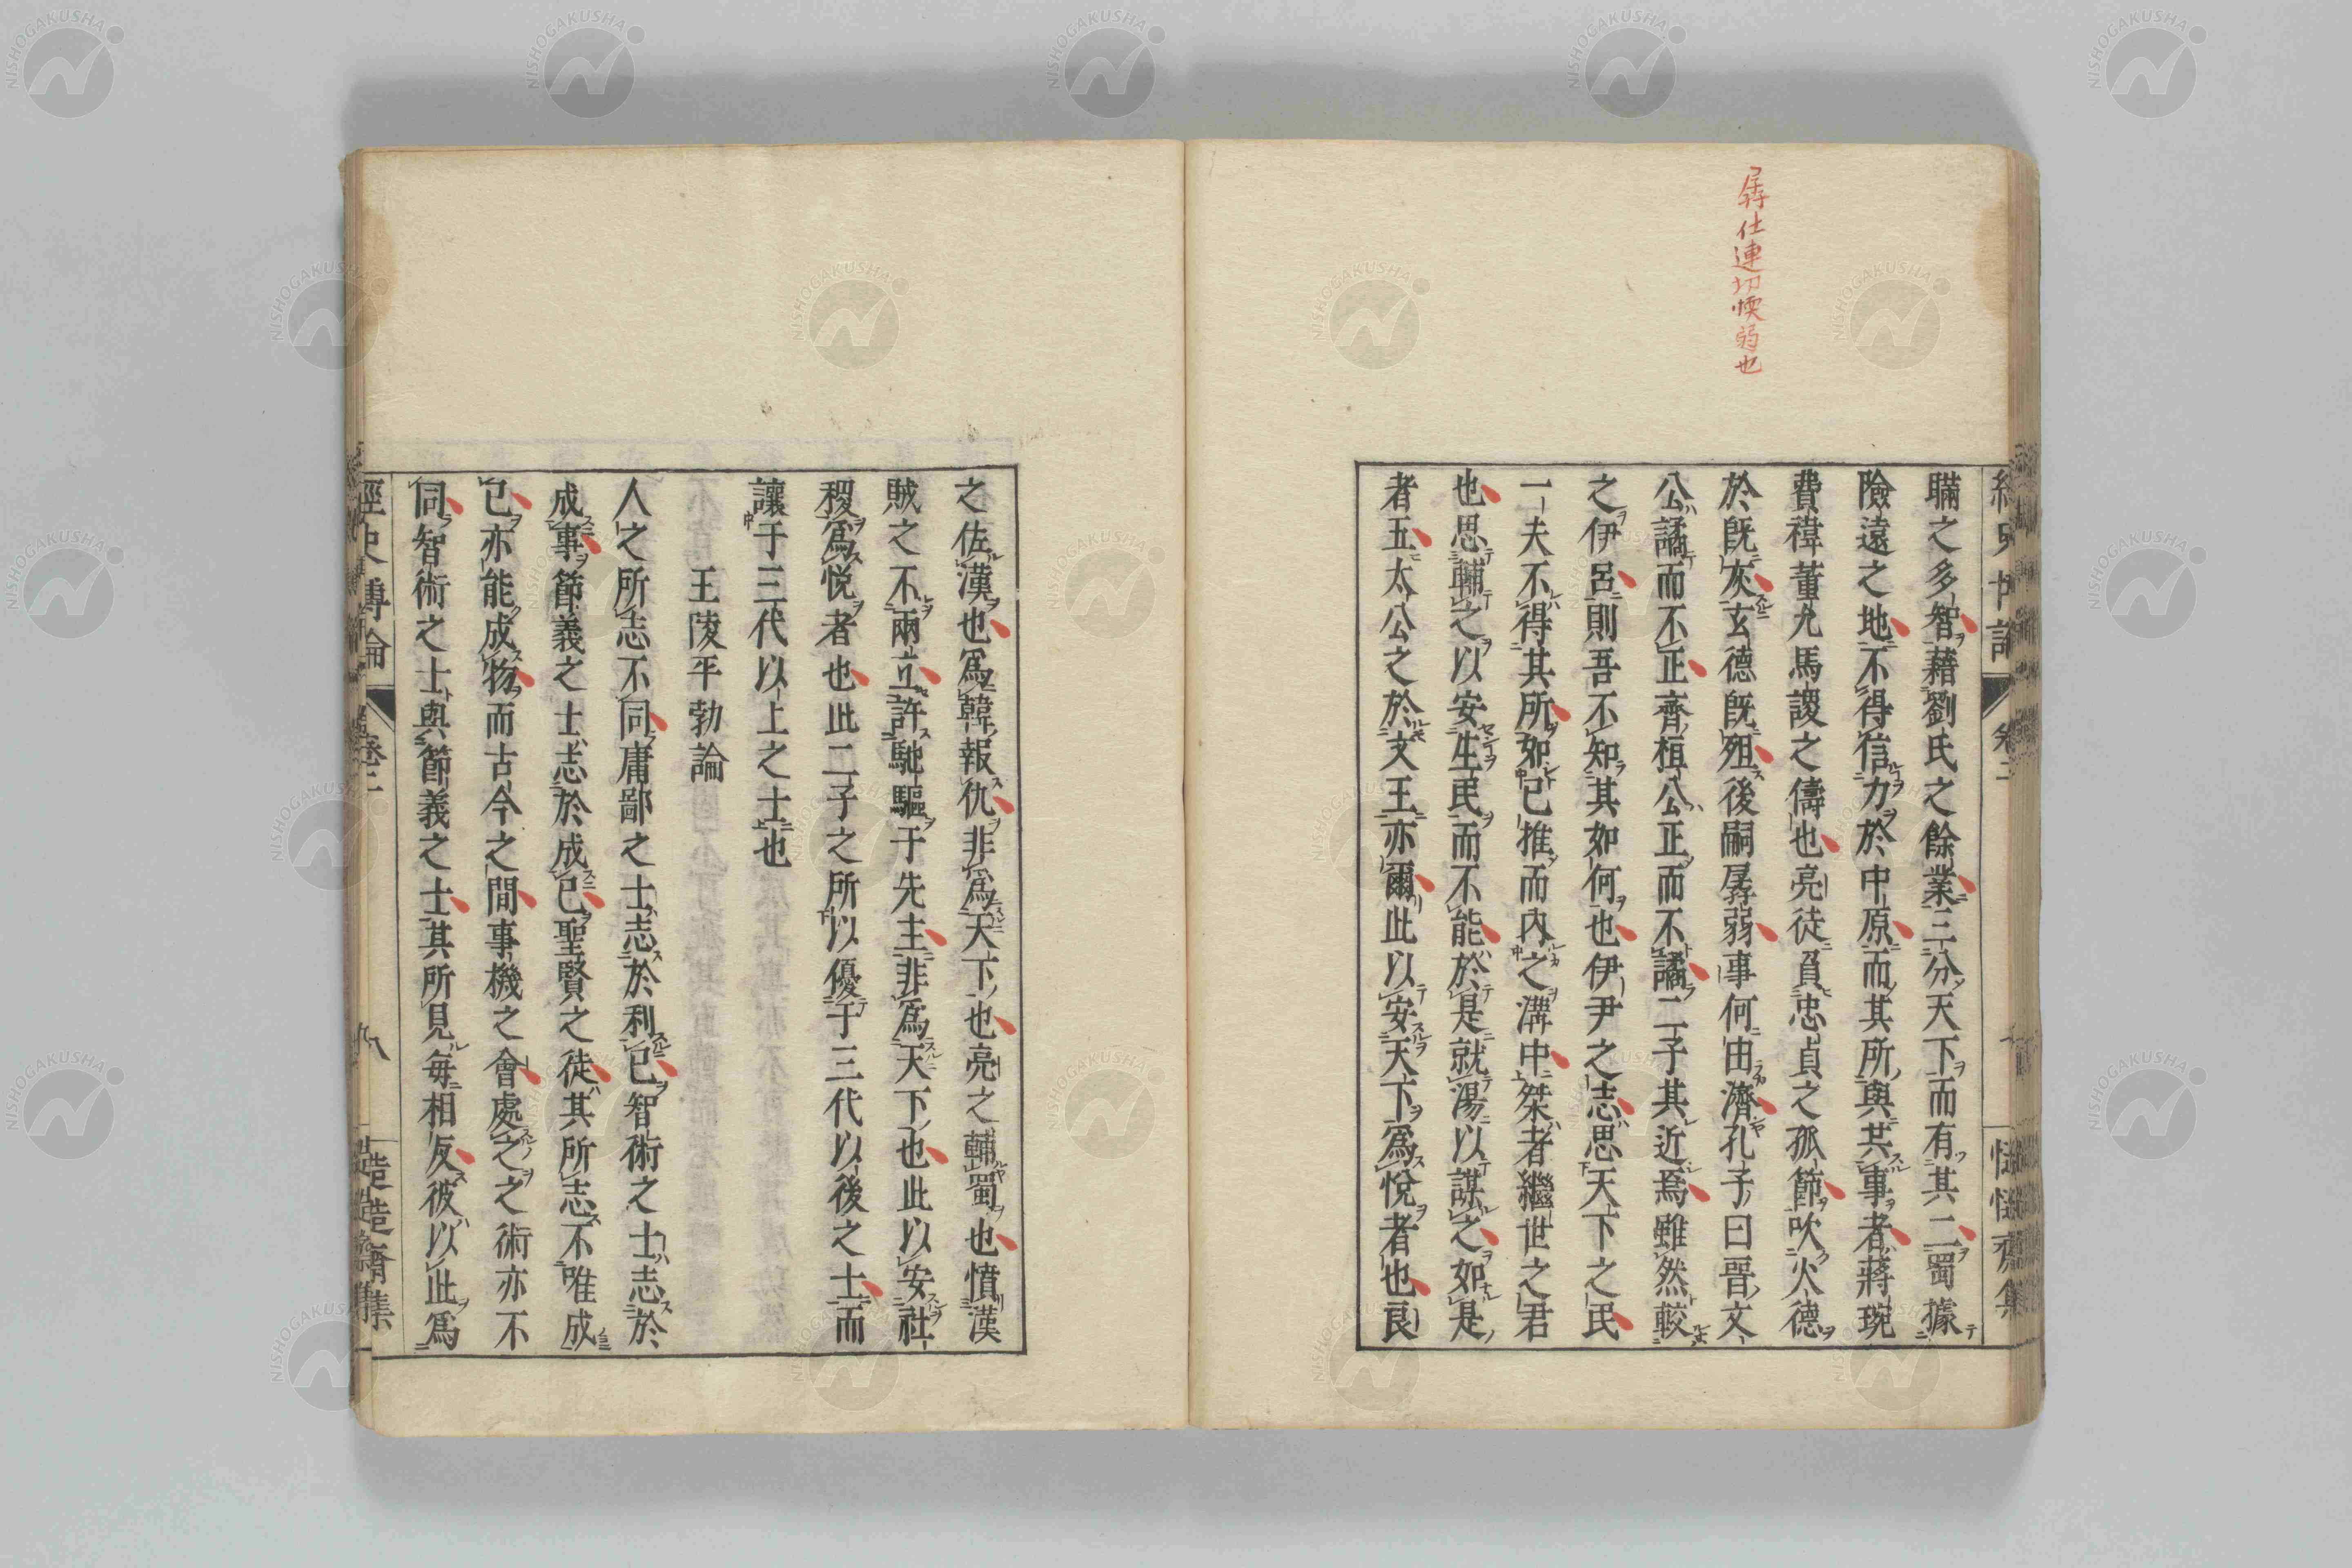 孱仕連切愞弱也
瞞之多智藉劉氏之餘業三分天下而有其二蜀據
險遠之地不得信力於中原而其所與共事者蔣琬
費禕董允馬謖之儔也亮徒負忠貞之孤節吹火德
於旣灰玄德旣殂後嗣孱弱事何由濟孔子曰晉文
公譎而不正齊桓公正而不譎二子其近焉雖然較
之伊呂則吾不知其如何也伊尹之志思天下之民
一夫不得其所如己推而內之溝中桀者繼世之君
也思輔之以安生民而不能於是就湯以謀之如是
者五太公之於文王亦爾此以安天下爲悅者也良
之佐漢也爲韓報仇非爲天下也亮之輔蜀也憤漢
賊之不兩立許馳驅于先主非爲天下也此以安社
稷爲悅者也此二子之所以優于三代以後之士而
讓于三代以上之士也
王陵平勃論
人之所志不同庸鄙之士志於利己智術之士志於
成事節義之士志於成己聖賢之徒其所志不唯成
己亦能成物而古今之間事機之會處之之術亦不
同智術之士與節義之士其所見每相反彼以此爲
經史博論
卷二
八
NISHOGAKUSHA